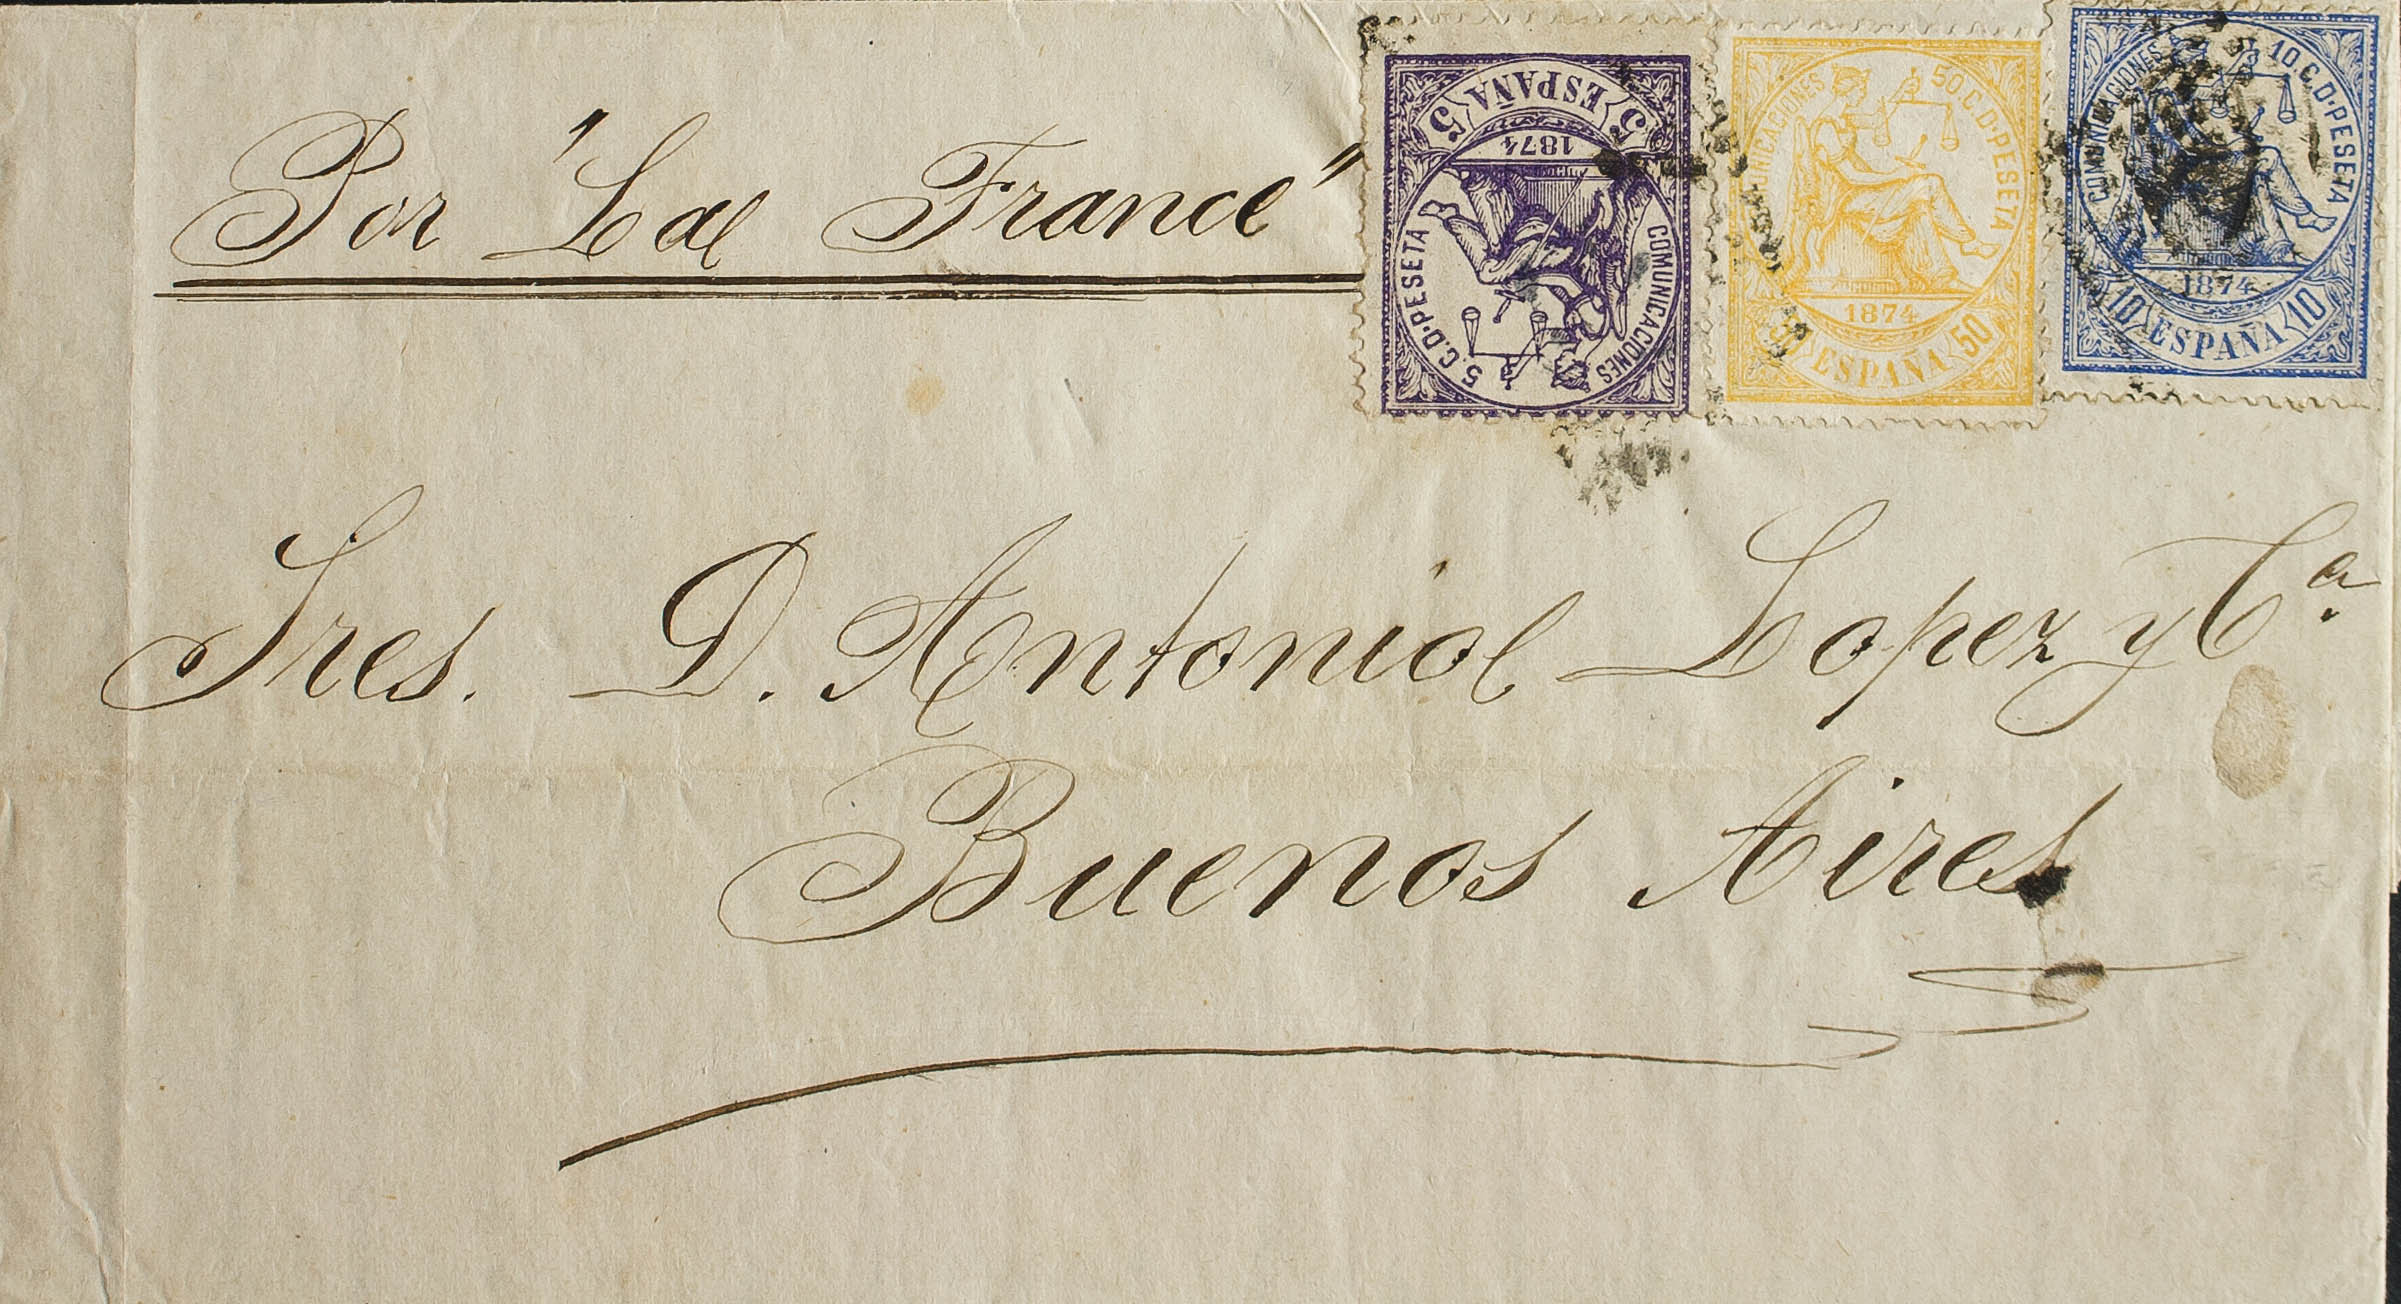 Por "La France"
5 ESPAÑA 5
1874
5 C. D. PESETA
COMUNICACIONES
COMUNICACIONES 50 C. D. PESETA
1874
50 ESPAÑA 50
COMUNICACIONES 10 C. D. PESETA
1874
10 ESPAÑA 10
Sres. D. Antonio Lopez y Cª
Buenos Aires